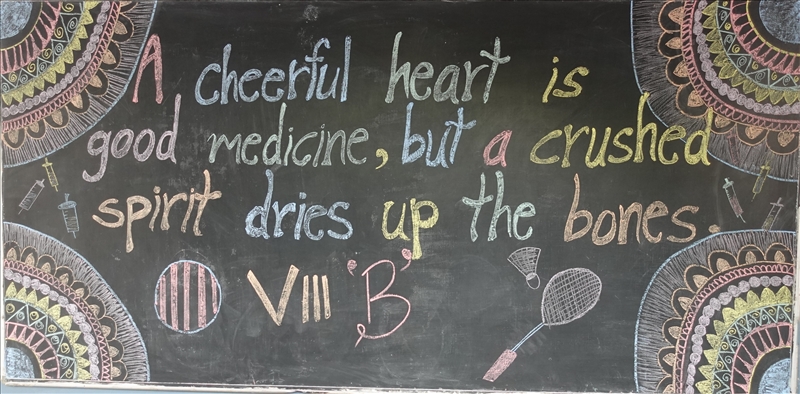 A cheerful heart is
good medicine, but a crushed
spirit dries up the bones.
VIII 'B'